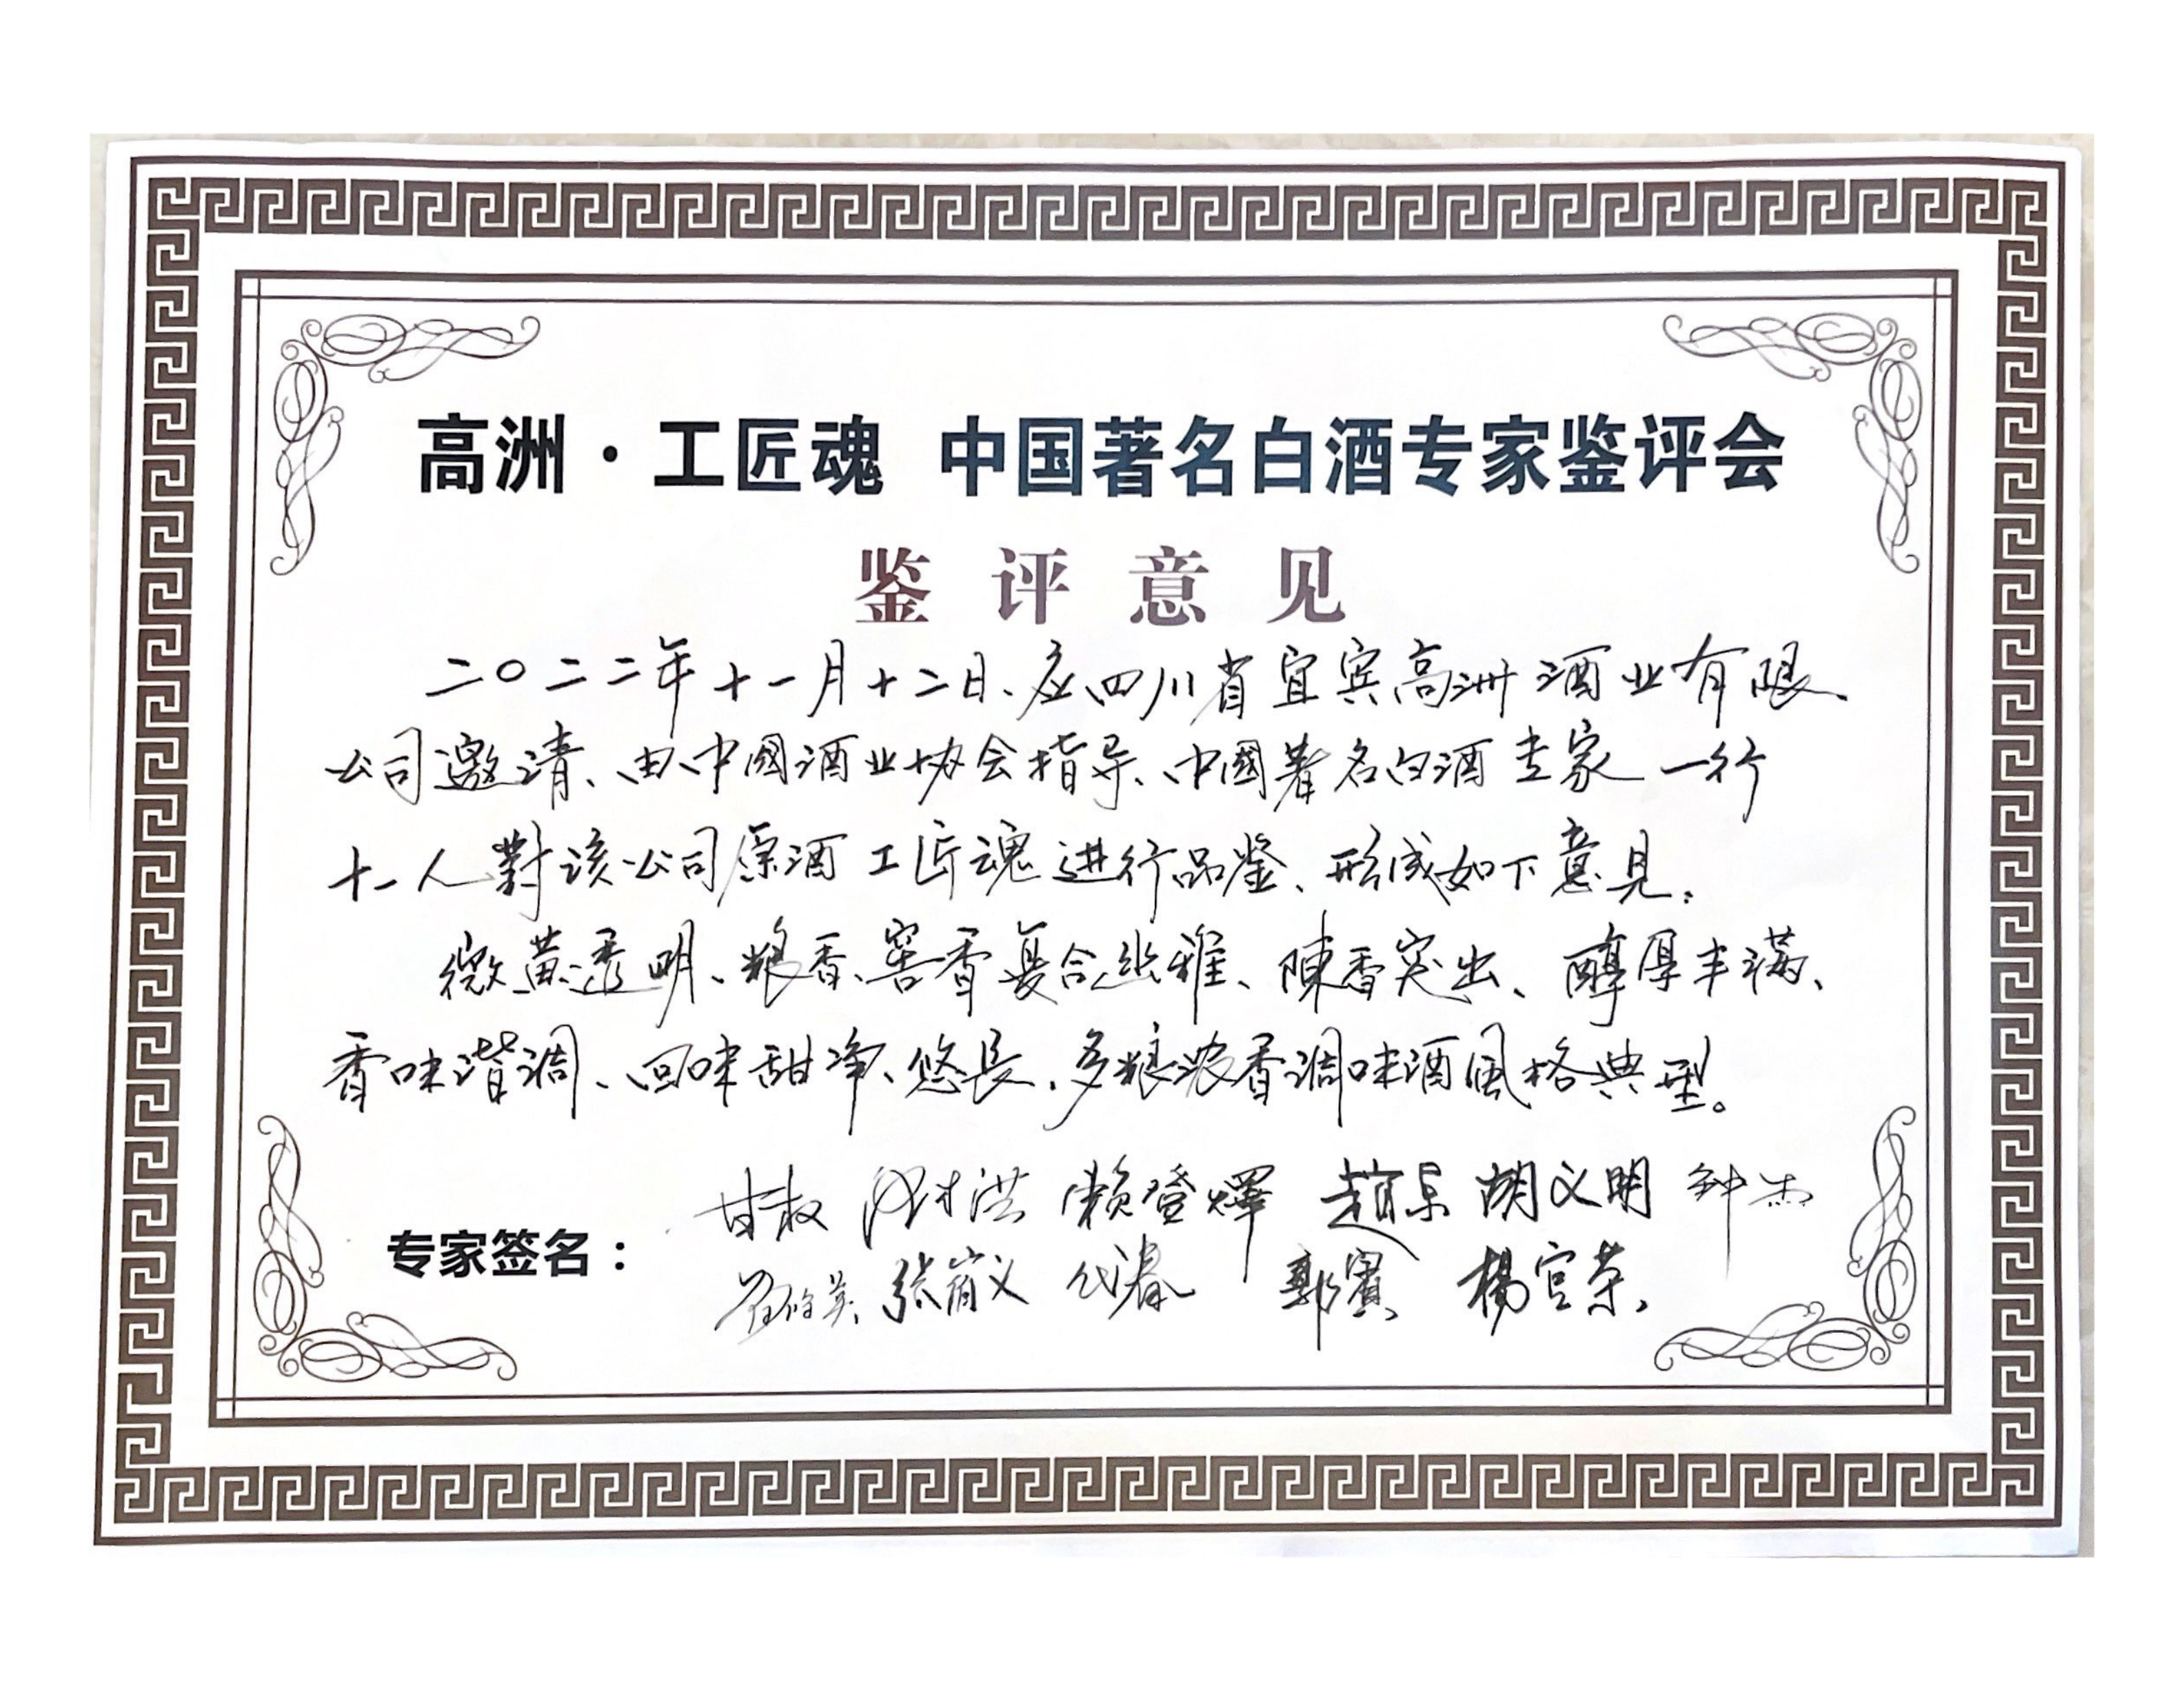 高洲·工匠魂 中国著名白酒专家鉴评会
鉴评意见
二〇二二年十一月十二日、应四川省宜宾高洲酒业有限
公司邀请、由中國酒业协会指导、中國著名白酒专家一行
十一人對该公司原酒工匠魂进行品鉴、形成如下意见:
微黄透明、粮香、窖香复合幽雅、陳香突出、醇厚丰满、
香味谐调、回味甜净、悠長、多粮浓香调味酒风格典型。
专家签名:
甘权 洪 赖登燡 赵东 胡义明 钟杰
张崇义 代春 郭賓 楊官荣